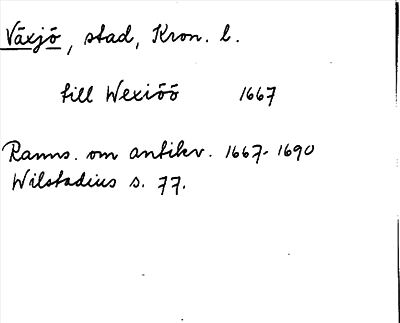 Växjö, stad, Kron. l.
till Wexiöö 1667
Ranns. om antikv. 1667-1690
Wilstadius s. 77.